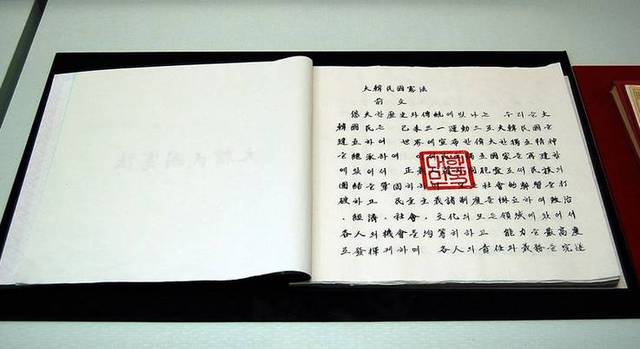 大韓民國憲法
前文
悠久한歷史와傳統에빛나는 우리들大
韓國民은 己未三一運動으로大韓民國을
建立하여 世界에宣布한偉大한獨立精神
을繼承하여 이 立國家를再建함
에있어서 正義 同胞愛로써民族의
團結을鞏固히하 社會的弊習을打
破하고 民主主義諸制度를樹立하여政治
,經濟,社會,文化의모든領域에있어서
各人의機會를均等히하고 能力을最高度
로發揮케하며 各人의責任과義務를完遂
대한민국